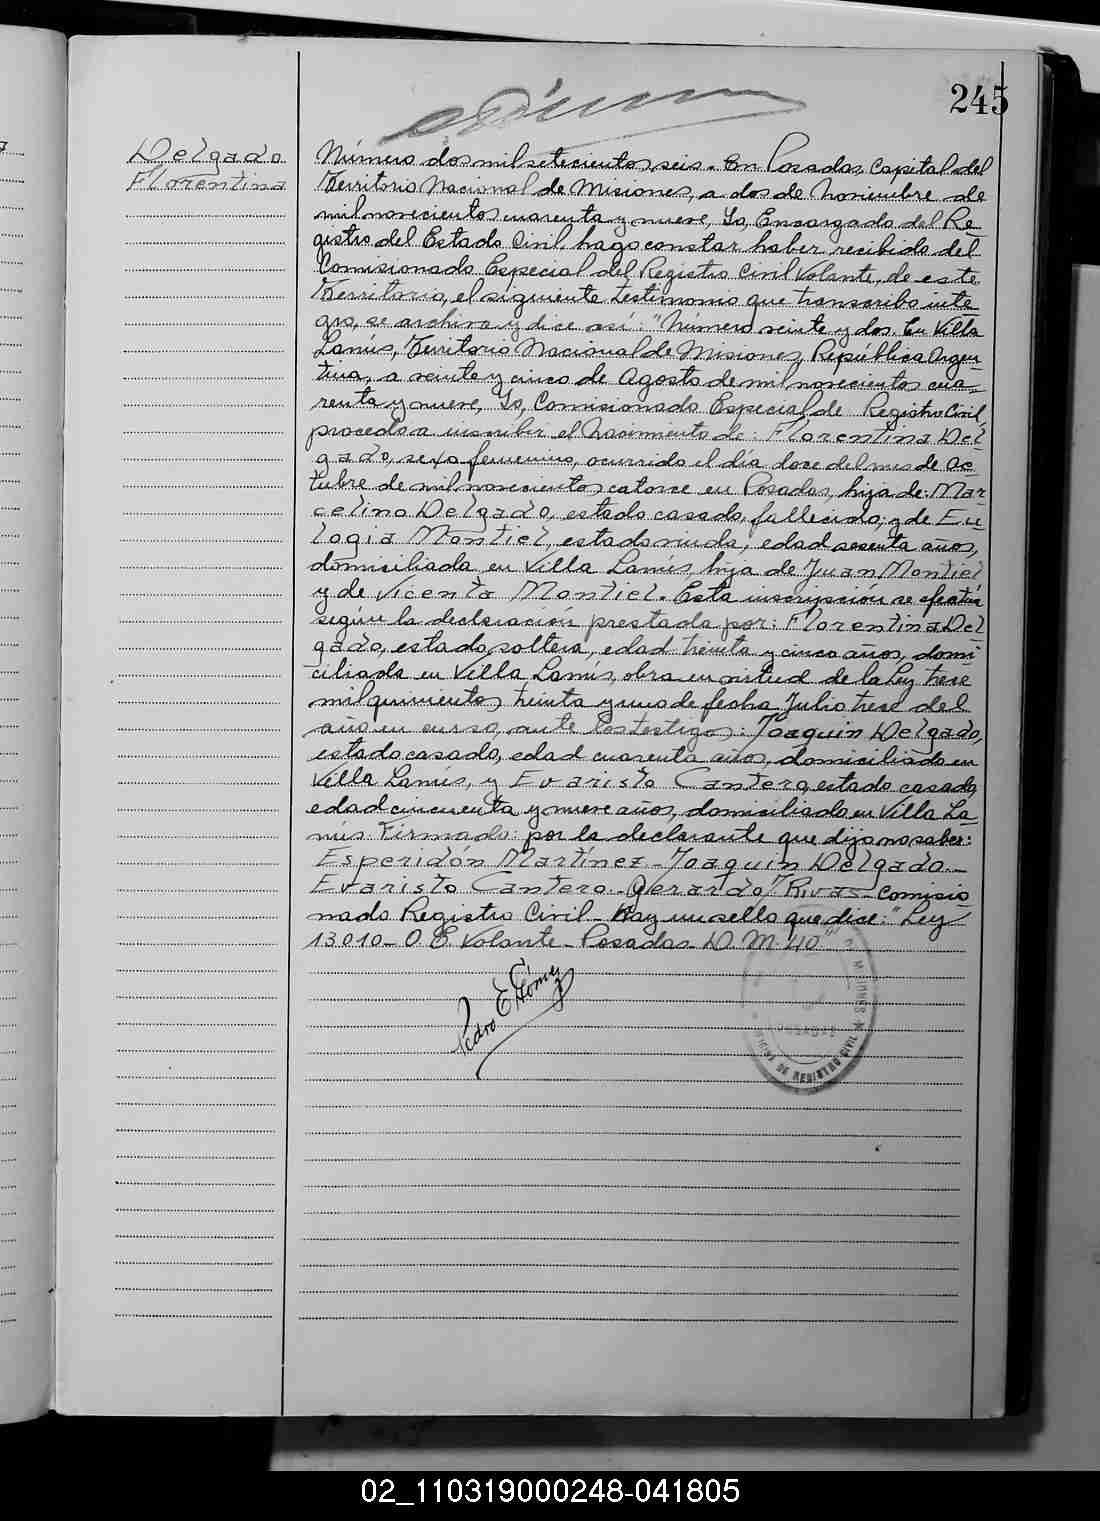 245
Delgado
Florentina
Número dos mil setecientos seis. En Posadas, Capital del
Territorio Nacional de Misiones, a dos de Noviembre de
mil novecientos cuarenta y nueve, Yo, Encargado del Re-
gistro del Estado Civil, hago constar haber recibido del
Comisionado Especial del Registro Civil Volante, de este
Territorio, el siguiente testimonio que transcribo ínte-
gro, se archiva y dice así: "Número veinte y dos. En Villa
Lanús, Territorio Nacional de Misiones, República Argen-
tina, a veinte y cinco de Agosto de mil novecientos cua-
renta y nueve, Yo, Comisionado Especial de Registro Civil,
procedo a inscribir el Nacimiento de: Florentina Del
gado, sexo femenino, ocurrido el día doce del mes de oc-
tubre de mil novecientos catorce en Posadas, hija de: Mar
celino Delgado, estado casado, fallecido; y de Eu
logia Montiel, estado viuda, edad sesenta años,
domiciliada en Villa Lanús, hija de Juan Montiel
y de Vicenta Montiel. Esta inscripción se efectúa
según la declaración prestada por: Florentina Del
gado, estado soltera, edad treinta y cinco años, domi-
ciliada en Villa Lanús, obra en virtud de la Ley trece
mil quinientos treinta y uno de fecha Julio trece del
año en curso, ante los testigos: Joaquin Delgado,
estado casado, edad cuarenta años, domiciliado en
Villa Lanus, y Evaristo Cantero, estado casado,
edad cincuenta y nueve años, domiciliado en Villa La-
nús. Firmado: por la declarante que dijo no saber:
Esperidón Martínez - Joaquin Delgado. -
Evaristo Cantero - Gerardo Rivas - comisio
nado Registro Civil - Hay un sello que dice: "Ley
13.010 - O. E. Volante - Posadas - D. M. 40""
Pedro E. Gómez
MISIONES
POSADAS
OFICINA DE REGISTRO CIVIL
02_110319000248-041805